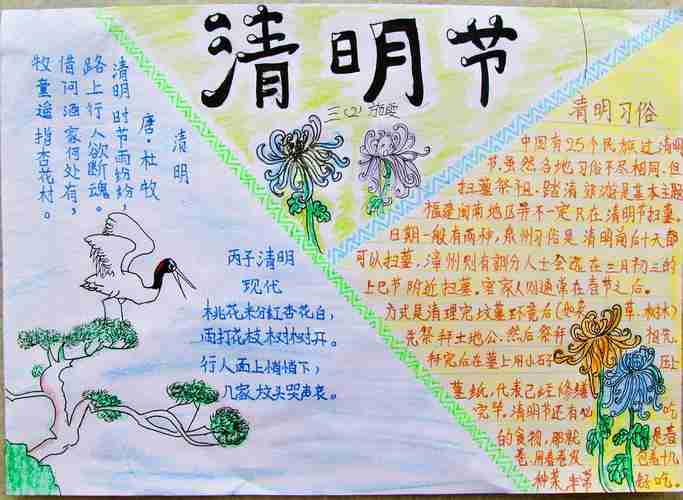 清明节
三(2)
清明
唐·杜牧
清明时节雨纷纷，
路上行人欲断魂。
借问酒家何处有，
牧童遥指杏花村。
丙子清明
现代
桃花米分红杏花白，
雨打花枝树树开。
行人面上悄悄下，
几家坟头哭声哀。
清明习俗
中国有25个民族过清明
节，虽然各地习俗不尽相同，但
扫墓祭祖、踏清旅游是基本主题
福建闽南地区并不一定只在清明节扫墓。
日期一般有两种，泉州习俗是清明前后十天都
可以扫墓，漳州则有部分人士会在三月初三的
上巳节附近扫墓。客家人则通常在春节之后。
方式是清理完坟墓环境后(如采 草、树木)
先祭拜土地公，然后祭拜 祖先。
拜完后在墓上用小石 压上
墓纸，代表已经修缮
完毕。清明节还有 吃
的食物，那就 是春
卷，用春卷皮 包着十几
种菜，非常 好吃。